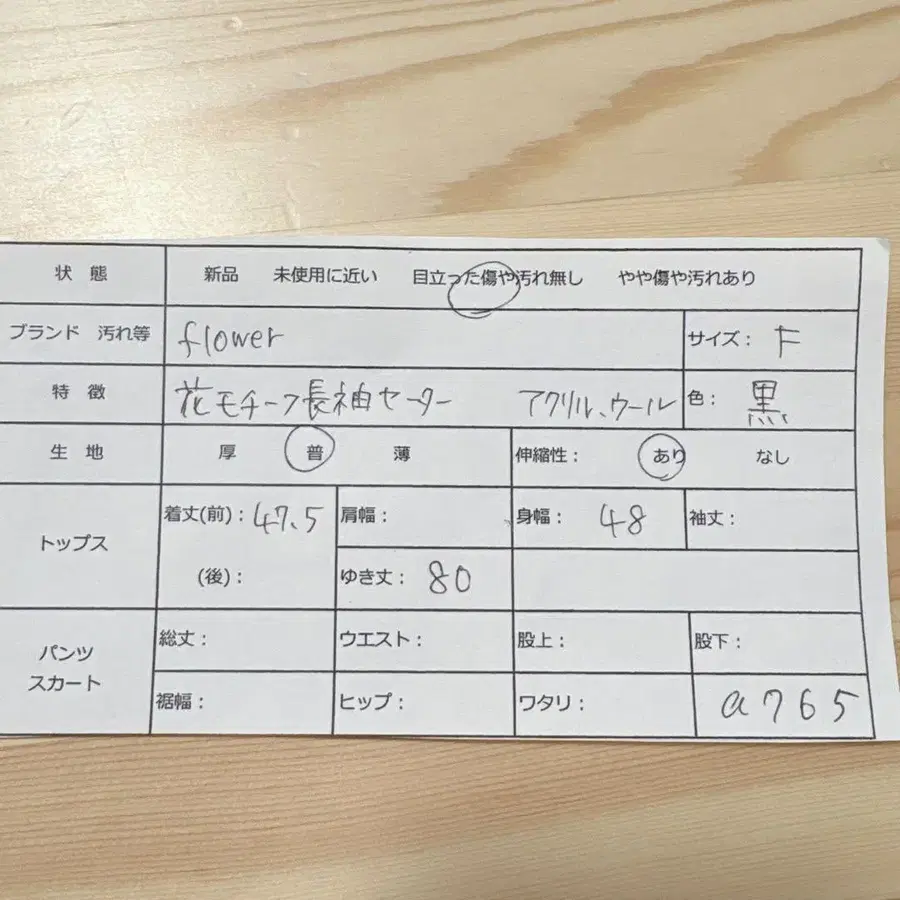 状 態 新品 未使用に近い 目立った傷や汚れ無し やや傷や汚れあり
ブランド 汚れ等 flower サイズ： F
特 徴 花モチーフ長袖セーター アクリル、ウール 色： 黒
生 地 厚 普 薄 伸縮性： あり なし
トップス 着丈(前)：47.5 肩幅： 身幅： 48 袖丈：
(後)： ゆき丈： 80
パンツ スカート 総丈： ウエスト： 股上： 股下：
裾幅： ヒップ： ワタリ： a765